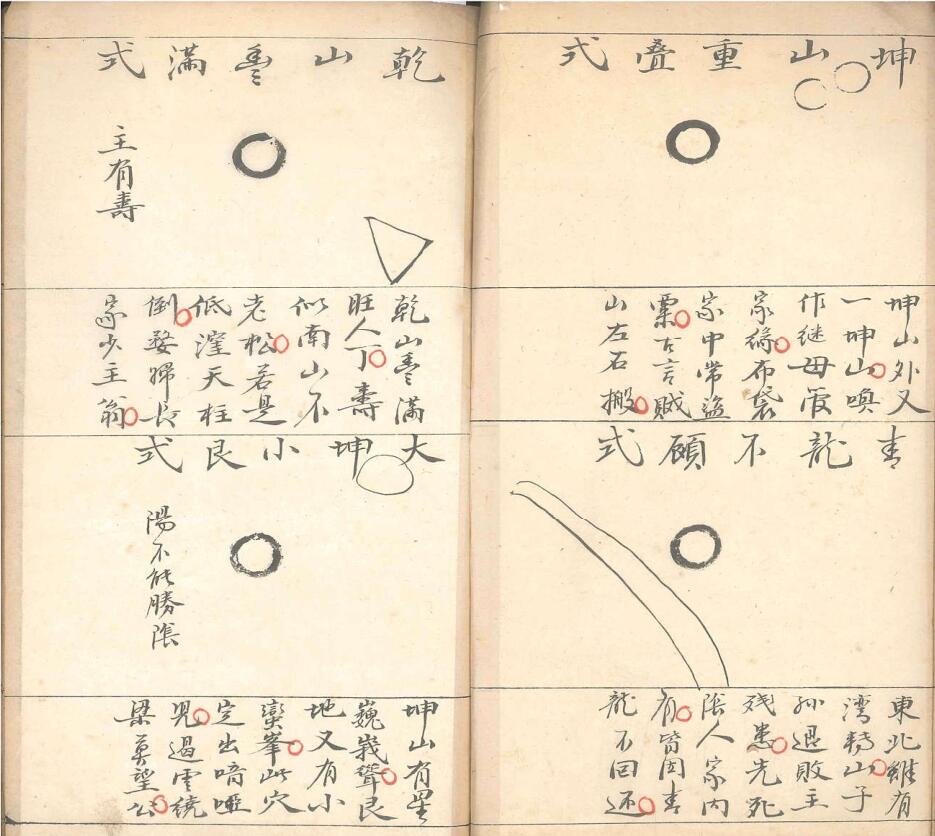 坤山重疊式
坤山外又
一坤山喚
作继母叚
家緣布袋
家中常盜
粟古言賊
山左石搬
青龍不顧式
東北雖有
湾轉山子
孙退敗主
残患先死
陰人家内
有皆因青
龍不回还
乾山豊滿式
主有壽
乾山豊滿
旺人丁壽
似南山不
老松若是
低漥天柱
倒婺婦長
家少主翁
大坤小艮式
陽不能勝陰
坤山有星
巍峩聳艮
地又有小
巒峯此穴
定出喑啞
児遏雲繞
梁莫望公